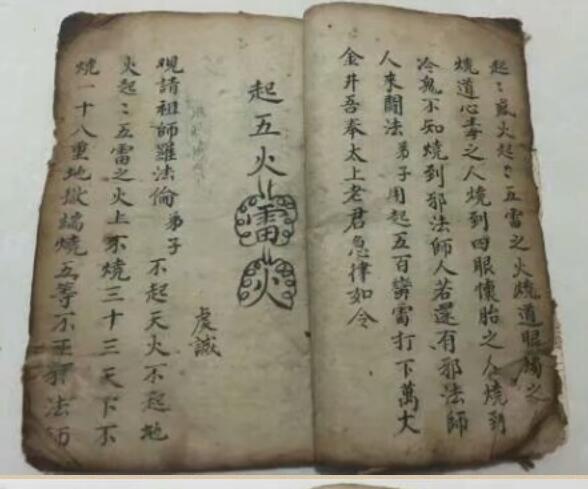 起〻風火起〻五雷之火燒道眼獨之
燒道心毒之人燒到四眼懷胎之人燒到
冷鬼不知燒到邪法師人若還有邪法師
人來鬪法弟子用起五百蠻雷打下萬丈
金井吾奉太上老君急律如令
起五火雷火
虔誠
覌請祖師羅法倫弟子不起天火不起地
火起〻五雷之火上不燒三十三天下不
燒一十八重地獄端燒五等不正邪法師